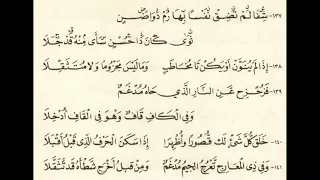 ١٣٧- شِفَا لَمْ تَضِقْ نَفْسًا بِهَا رُمْ دَوَا ضَنٍ
ثَوَى كَانَ ذَا حُسْنٍ سَأَى مِنْهُ قَدْ جَلَا
١٣٨- إِذَا لَمْ يُنَوَّنْ أَوْ يَكُنْ تَا مُخَاطَبٍ وَمَا لَيْسَ مَجْزُومًا وَلَا مُتَثَقِّلَا
١٣٩- فَزُحْزِحَ عَنِ النَّارِ الَّذِي حَاهُ مُدْغَمٌ
وَفِي الْكَافِ قَافٌ وَهْوَ فِي الْقَافِ أُدْخِلَا
١٤٠- خَلَقَ كُلَّ شَيْءٍ لَكَ قُصُورًا وَأُظْهِرَا إِذَا سَكَنَ الْحَرْفُ الَّذِي قَبْلُ أُقْبِلَا
١٤١- وَفِي ذِي الْمَعَارِجِ تَعْرُجُ الْجِيمُ مُدْغَمٌ وَمِنْ قَبْلُ أَخْرَجَ شَطْأَهُ قَدْ تَثَقَّلَا